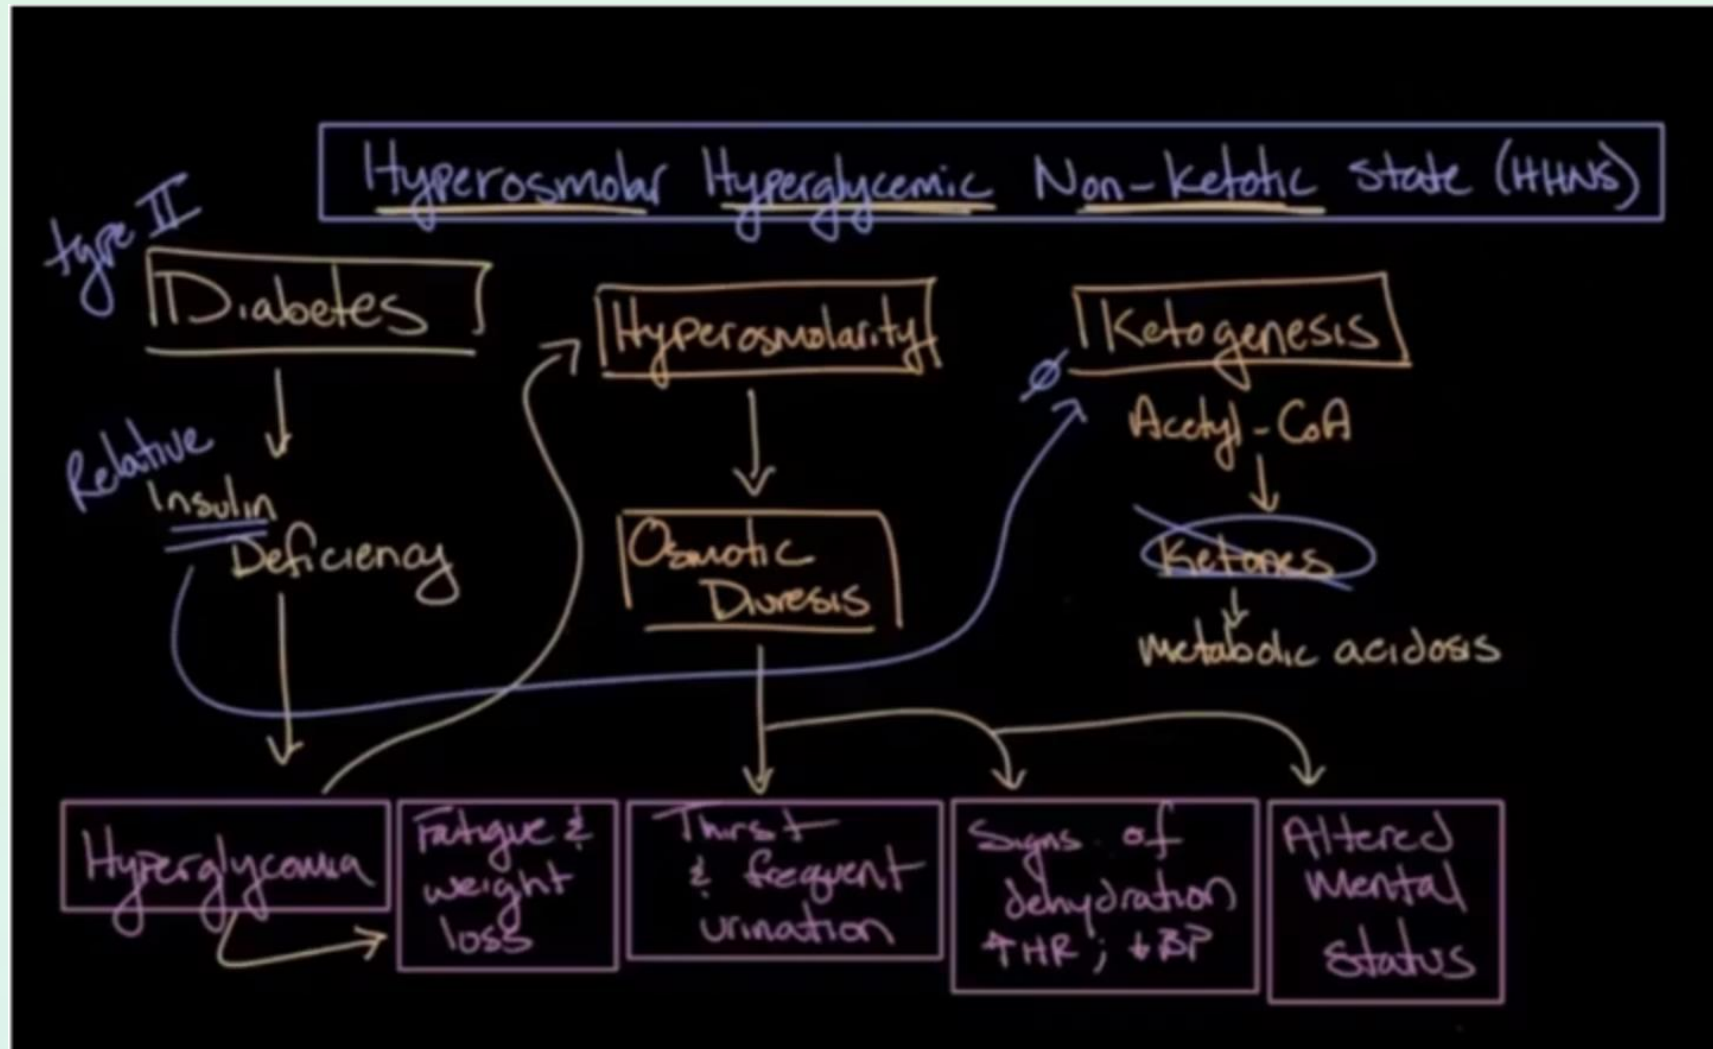 Hyperosmolar Hyperglycemic Non-Ketotic State (HHNS)
type II
Diabetes
Relative
Insulin
Deficiency
Hyperosmolarity
Osmotic
Diuresis
Ø
Ketogenesis
Acetyl-CoA
Ketones
metabolic acidosis
Hyperglycemia
Fatigue &
weight
loss
Thirst
& frequent
urination
Signs of
dehydration
↑HR; ↓BP
Altered
mental
status